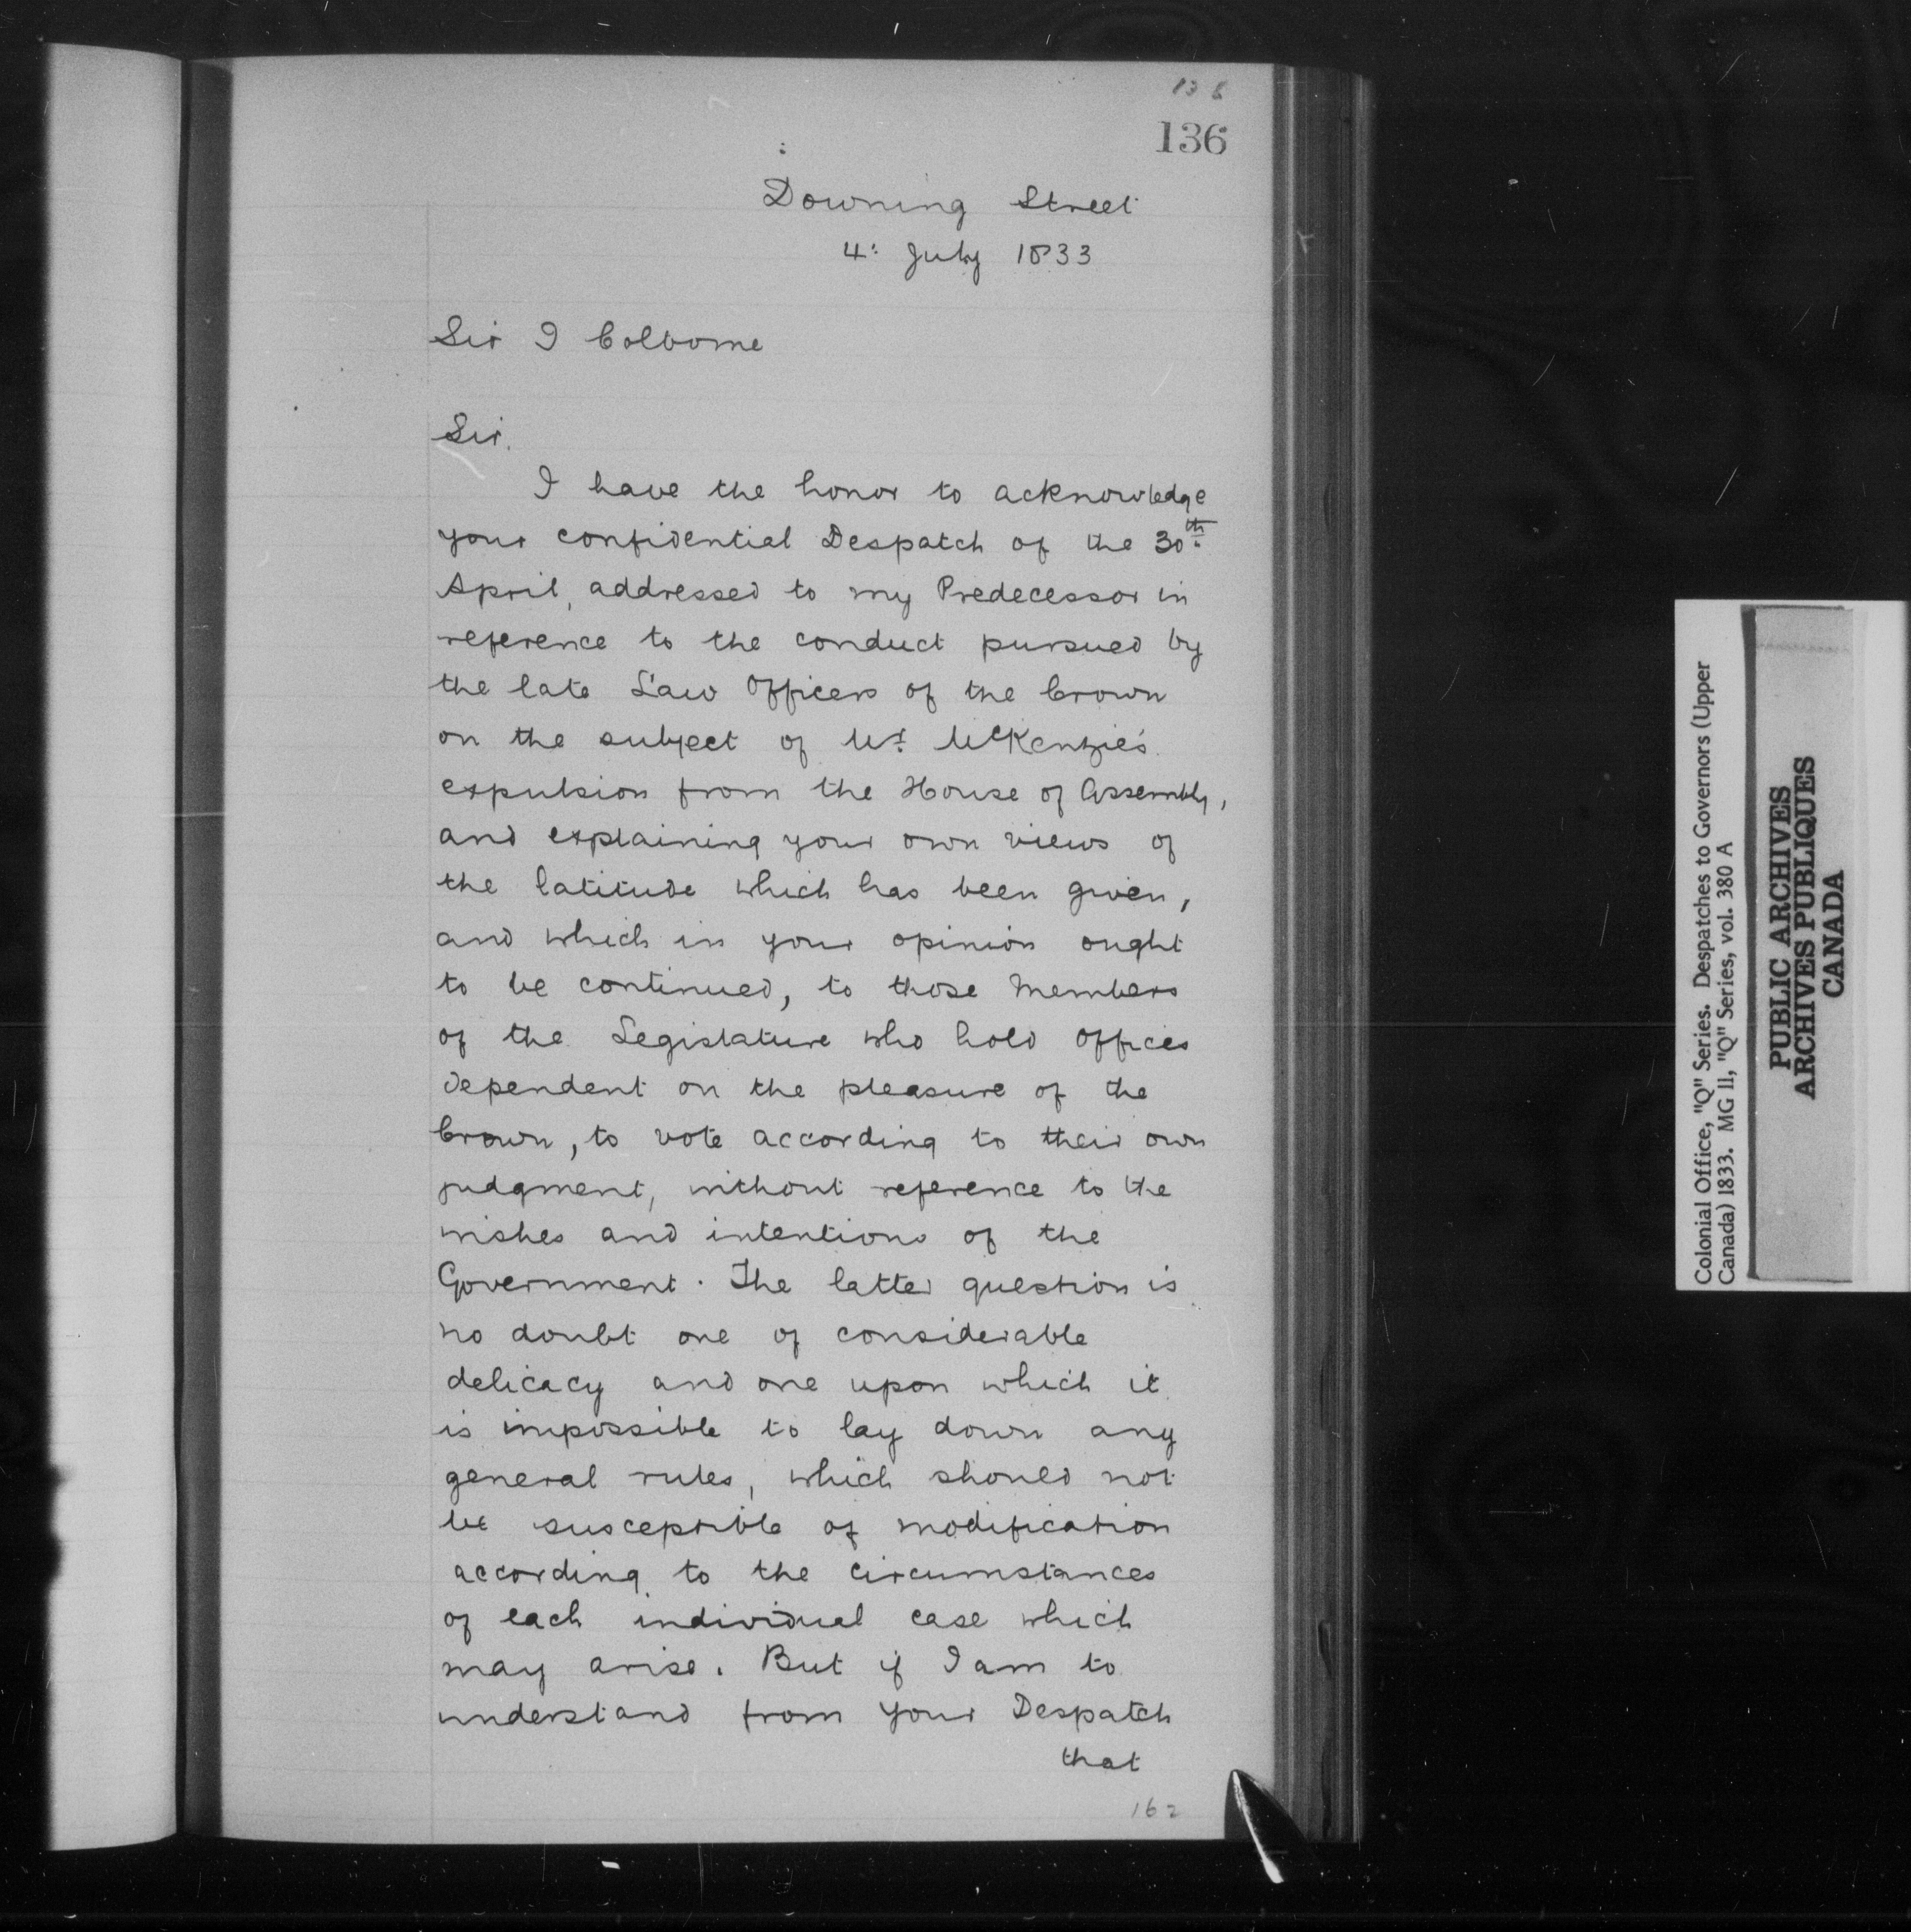 136
Downing Street
4: July 1833
Sir J Colborne
Sir.
I have the honor to acknowledge
your confidential Despatch of the 30th
April, addressed to my Predecessor in
reference to the conduct pursued by
the late Law Officers of the Crown
on the subject of Mr. McKenzie's
expulsion from the House of Assembly,
and explaining your own views of
the latitude which has been given,
and which in your opinion ought
to be continued, to those Members
of the Legislature who hold offices
dependent on the pleasure of the
Crown, to vote according to their own
judgment, without reference to the
wishes and intentions of the
Government. The latter question is
no doubt one of considerable
delicacy and one upon which it
is impossible to lay down any
general rules, which should not
be susceptible of modification
according to the circumstances
of each individual case which
may arise. But if I am to
understand from your Despatch
that
162
Colonial Office, "Q" Series. Despatches to Governors (Upper
Canada) 1833. MG 11, "Q" Series, vol. 380 A
PUBLIC ARCHIVES
ARCHIVES PUBLIQUES
CANADA